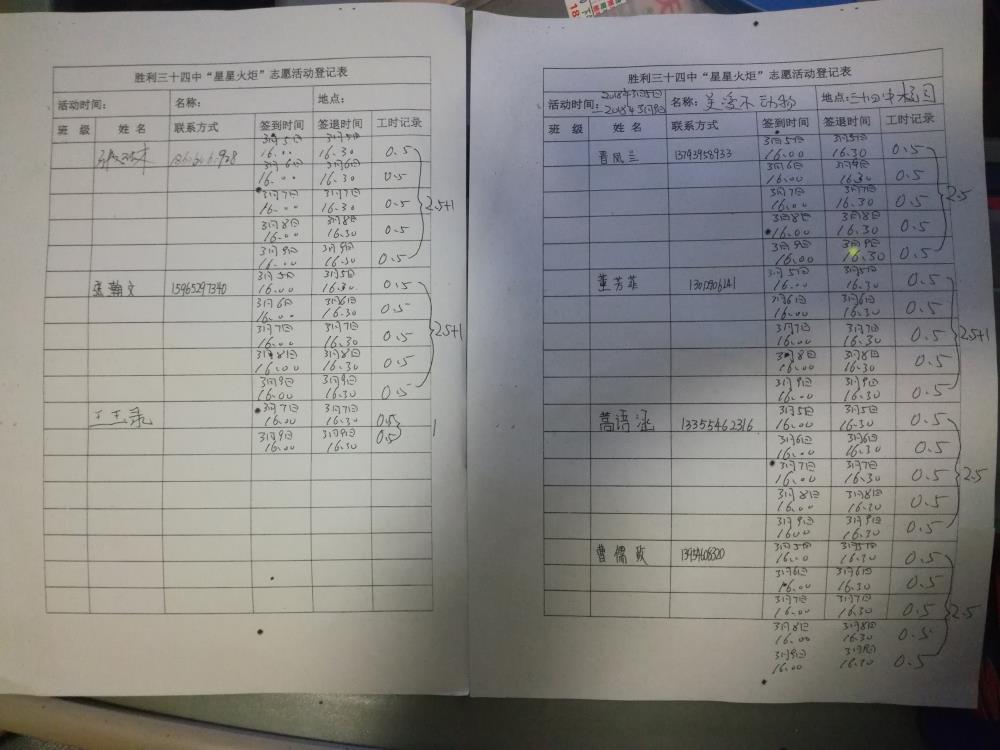 胜利三十四中“星星火炬”志愿活动登记表
活动时间： 名称： 地点：
班 级 姓 名 联系方式 签到时间 签退时间 工时记录
3月5日 3月5日
16.00 16.30 0.5
3月6日 3月6日
16.00 16.30 0.5
3月7日 3月7日
16.00 16.30 0.5
2.5+1
3月8日 3月8日
16.00 16.30 0.5
3月9日 3月9日
16.00 16.30 0.5
瀚文 15965297340
3月5日 3月5日
16.00 16.30 0.5
3月6日 3月6日
16.00 16.30 0.5
3月7日 3月7日
16.00 16.30 0.5
2.5+1
3月8日 3月8日
16.00 16.30 0.5
3月9日 3月9日
16.00 16.30 0.5
3月7日 3月7日
16.00 16.30 0.5
1
3月9日 3月9日
16.00 16.30 0.5
胜利三十四中“星星火炬”志愿活动登记表
活动时间：2018年3月5日
—2018年3月9日 名称： 地点：三十四中
班 级 姓 名 联系方式 签到时间 签退时间 工时记录
晋凤兰 13793958933
3月5日 3月5日
16.00 16.30 0.5
3月6日 3月6日
16.00 16.30 0.5
3月7日 3月7日
16.00 16.30 0.5
2.5
3月8日 3月8日
16.00 16.30 0.5
3月9日 3月9日
16.00 16.30 0.5
董芳菲
3月5日 3月5日
16.00 16.30 0.5
3月6日 3月6日
16.00 16.30 0.5
3月7日 3月7日
16.00 16.30 0.5
2.5+1
3月8日 3月8日
16.00 16.30 0.5
3月9日 3月9日
16.00 16.30 0.5
语涵 13355462316
3月5日 3月5日
16.00 16.30 0.5
3月6日 3月6日
16.00 16.30 0.5
3月7日 3月7日
16.00 16.30 0.5
2.5
3月8日 3月8日
16.00 16.30 0.5
3月9日 3月9日
16.00 16.30 0.5
曹儒
3月5日 3月5日
16.00 16.30 0.5
3月6日 3月6日
16.00 16.30 0.5
3月7日 3月7日
16.00 16.30 0.5
2.5
3月8日 3月8日
16.00 16.30 0.5
3月9日 3月9日
16.00 16.30 0.5